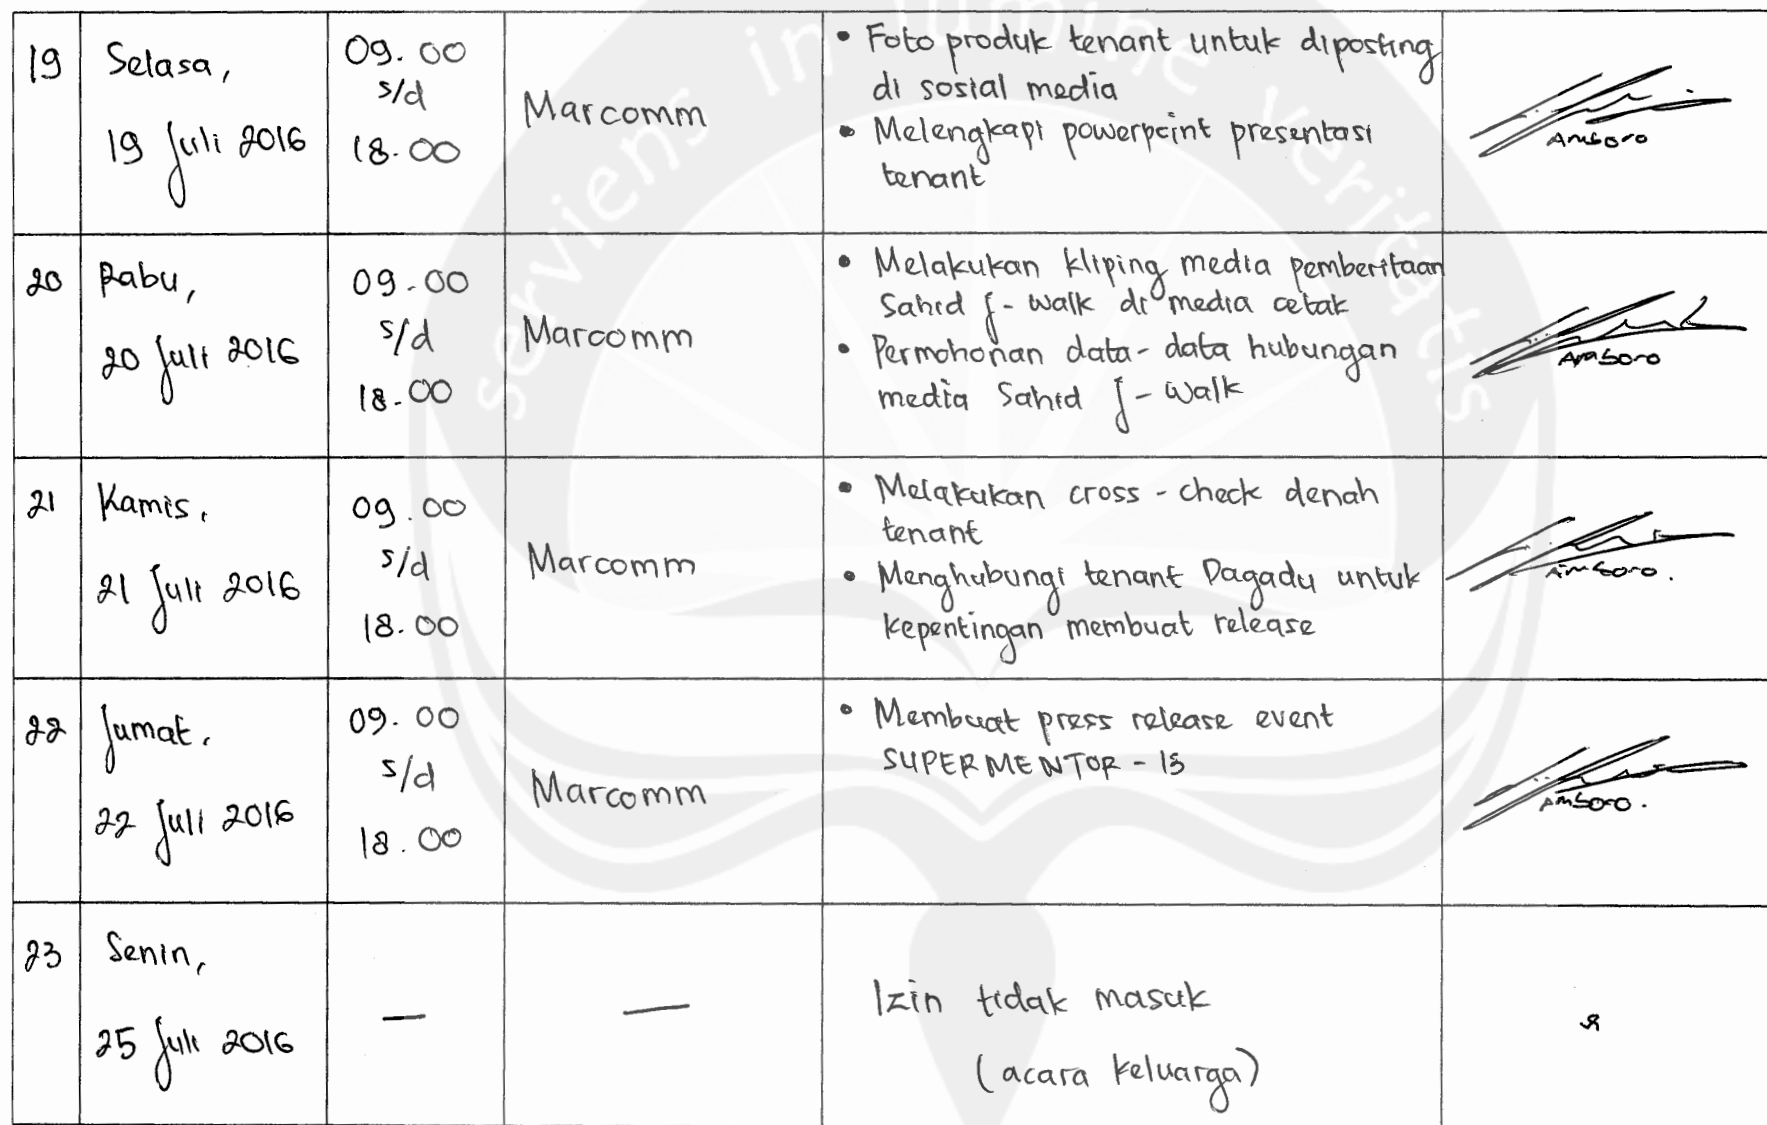 serviens in lumine veritatis
19
Selasa,
19 Juli 2016
09.00
s/d
18.00
Marcomm
• Foto produk tenant untuk diposting
di sosial media
• Melengkapi powerpoint presentasi
tenant
Amboro
20
Rabu,
20 Juli 2016
09.00
s/d
18.00
Marcomm
• Melakukan kliping media pemberitaan
Sahid J-Walk di media cetak
• Permohonan data-data hubungan
media Sahid J-Walk
Amboro
21
Kamis,
21 Juli 2016
09.00
s/d
18.00
Marcomm
• Melakukan cross-check denah
tenant
• Menghubungi tenant Dagadu untuk
kepentingan membuat release
Amboro.
22
Jumat,
22 Juli 2016
09.00
s/d
18.00
Marcomm
• Membuat press release event
SUPERMENTOR-15
Amboro.
23
Senin,
25 Juli 2016
—
—
Izin tidak masuk
(acara keluarga)